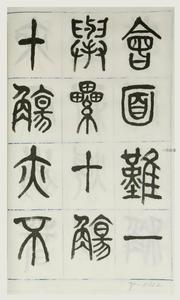 會面難一
舉纍十觴
十觴亦不